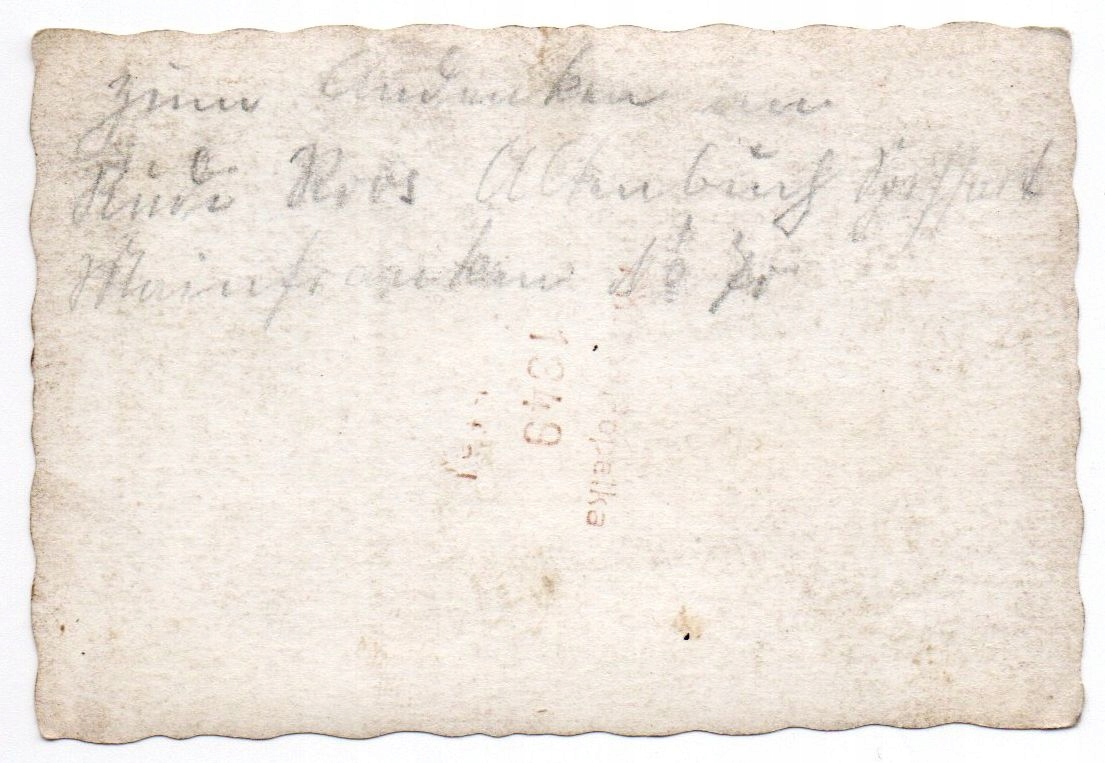 Zum Andenken an
Rudi Roos Altenbuch
Mainfranken
1849